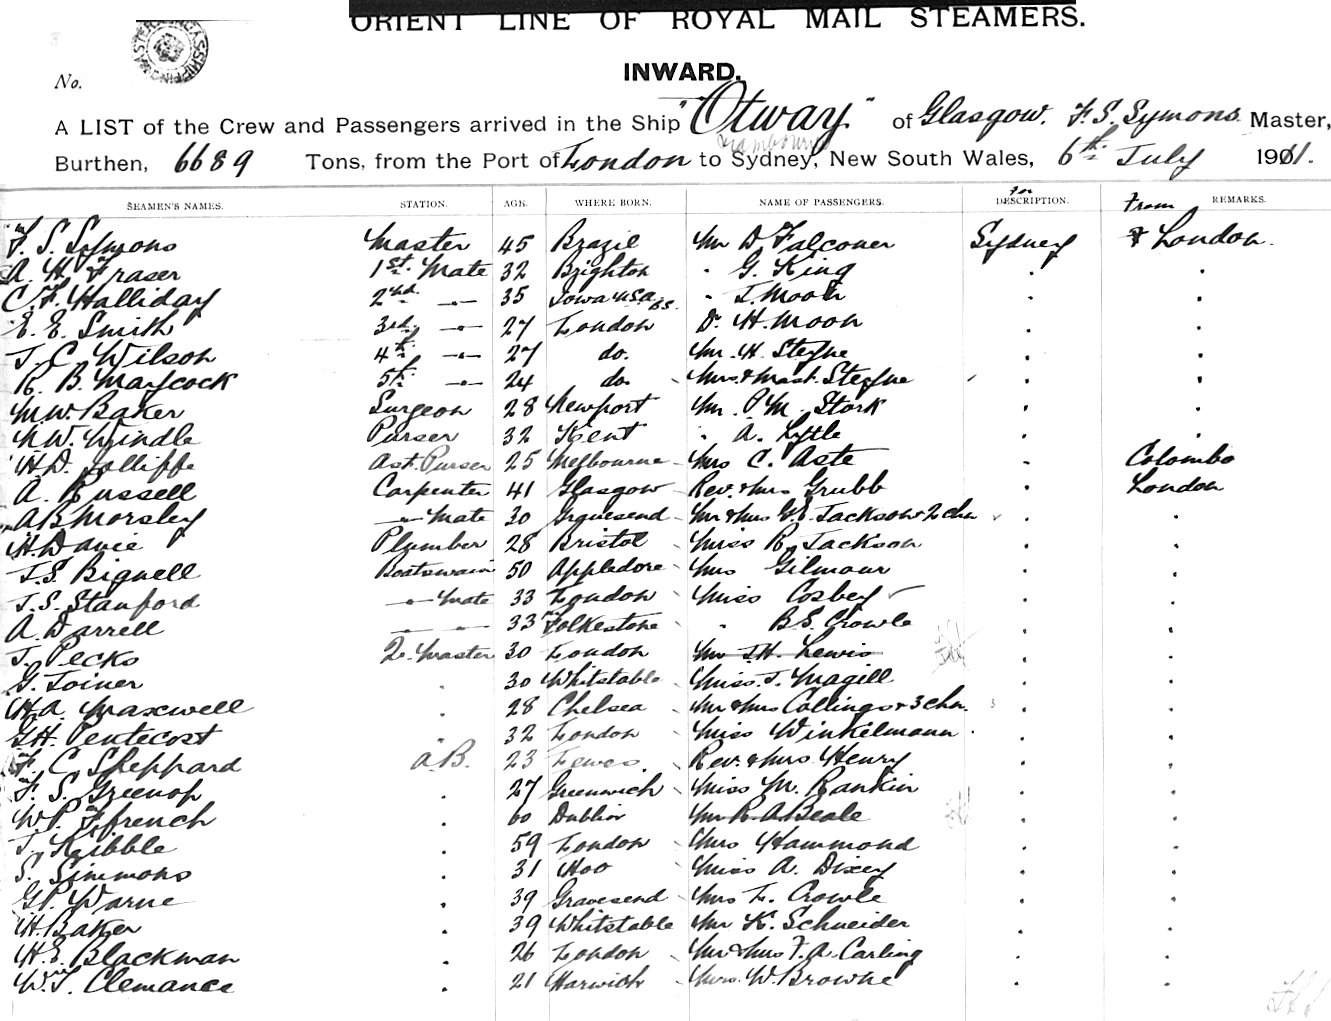 ORIENT LINE OF ROYAL MAIL STEAMERS.
INWARD.
No.
A LIST of the Crew and Passengers arrived in the Ship "Otway" of Glasgow. F. S. Symons Master,
Burthen, 6689 Tons, from the Port of London to Sydney, New South Wales, 6th July 1911.
SEAMEN'S NAMES. STATION. AGE. WHERE BORN. NAME OF PASSENGERS. For DESCRIPTION. From REMARKS.
F. S. Symons Master 45 Brazil Mr D Falconer Sydney London.
A. H. Fraser 1st. Mate 32 Brighton " G. King " "
C. F. Halliday 2nd —"— 35 Iowa USA " J. Moon " "
E. E. Smith 3rd —"— 27 London Dr H. Moon " "
J. C. Wilson 4th —"— 27 do. Mr. H. Steyne " "
R. B. Maycock 5th —"— 24 do. Mrs & Mast. Steyne " "
M. W. Baker Surgeon 28 Newport Mr. P. M. Stork " "
N. W. Windle Purser 32 Kent " A. Lyttle " "
H. D. Jolliffe Ast. Purser 25 Melbourne Mrs C. Aste " Colombo
A. Russell Carpenter 41 Glasgow Rev. & Mrs Grubb " London
A B Morsley —"— Mate 30 Gravesend Mr & Mrs G. E. Jackson & 2 chn " "
H Davie Plumber 28 Bristol Miss R. Jackson " "
J. S. Bignell Boatswain 50 Appledore Mrs Gilmour " "
J. S. Stanford —"— Mate 33 London Miss Cosbey " "
A. Darrell — — 33 Folkestone " B. E. Crowle " "
J. Pecks Q. Master 30 London Mr J. H. Lewis " "
G. Joiner " 30 Whitstable Miss J. Magill " "
H. A. Maxwell 28 Chelsea Mr & Mrs Collings & 3 chn. " "
G. H. Pentecost " 32 London Miss Winkelmann " "
F. C Sheppard A.B. 23 Lewes Rev. & Mrs. Henry " "
F. S. Greenop " 27 Greenwich Miss M. Rankin " "
W. P. Ffrench " 60 Dublin Mr R. A Beale " "
J. Kibble " 59 London Mrs Hammond " "
S. Simmons " 31 Hoo Miss A. Dixey " "
G. P. Warne " 39 Gravesend Mrs L. Crowle " "
H. Baker " 39 Whitstable Mr K. Schneider " "
H. E. Blackman " 26 London Mr & Mrs F. A. Carling " "
Wm. J. Clemance " 21 Harwich Mrs. W. Browne " "